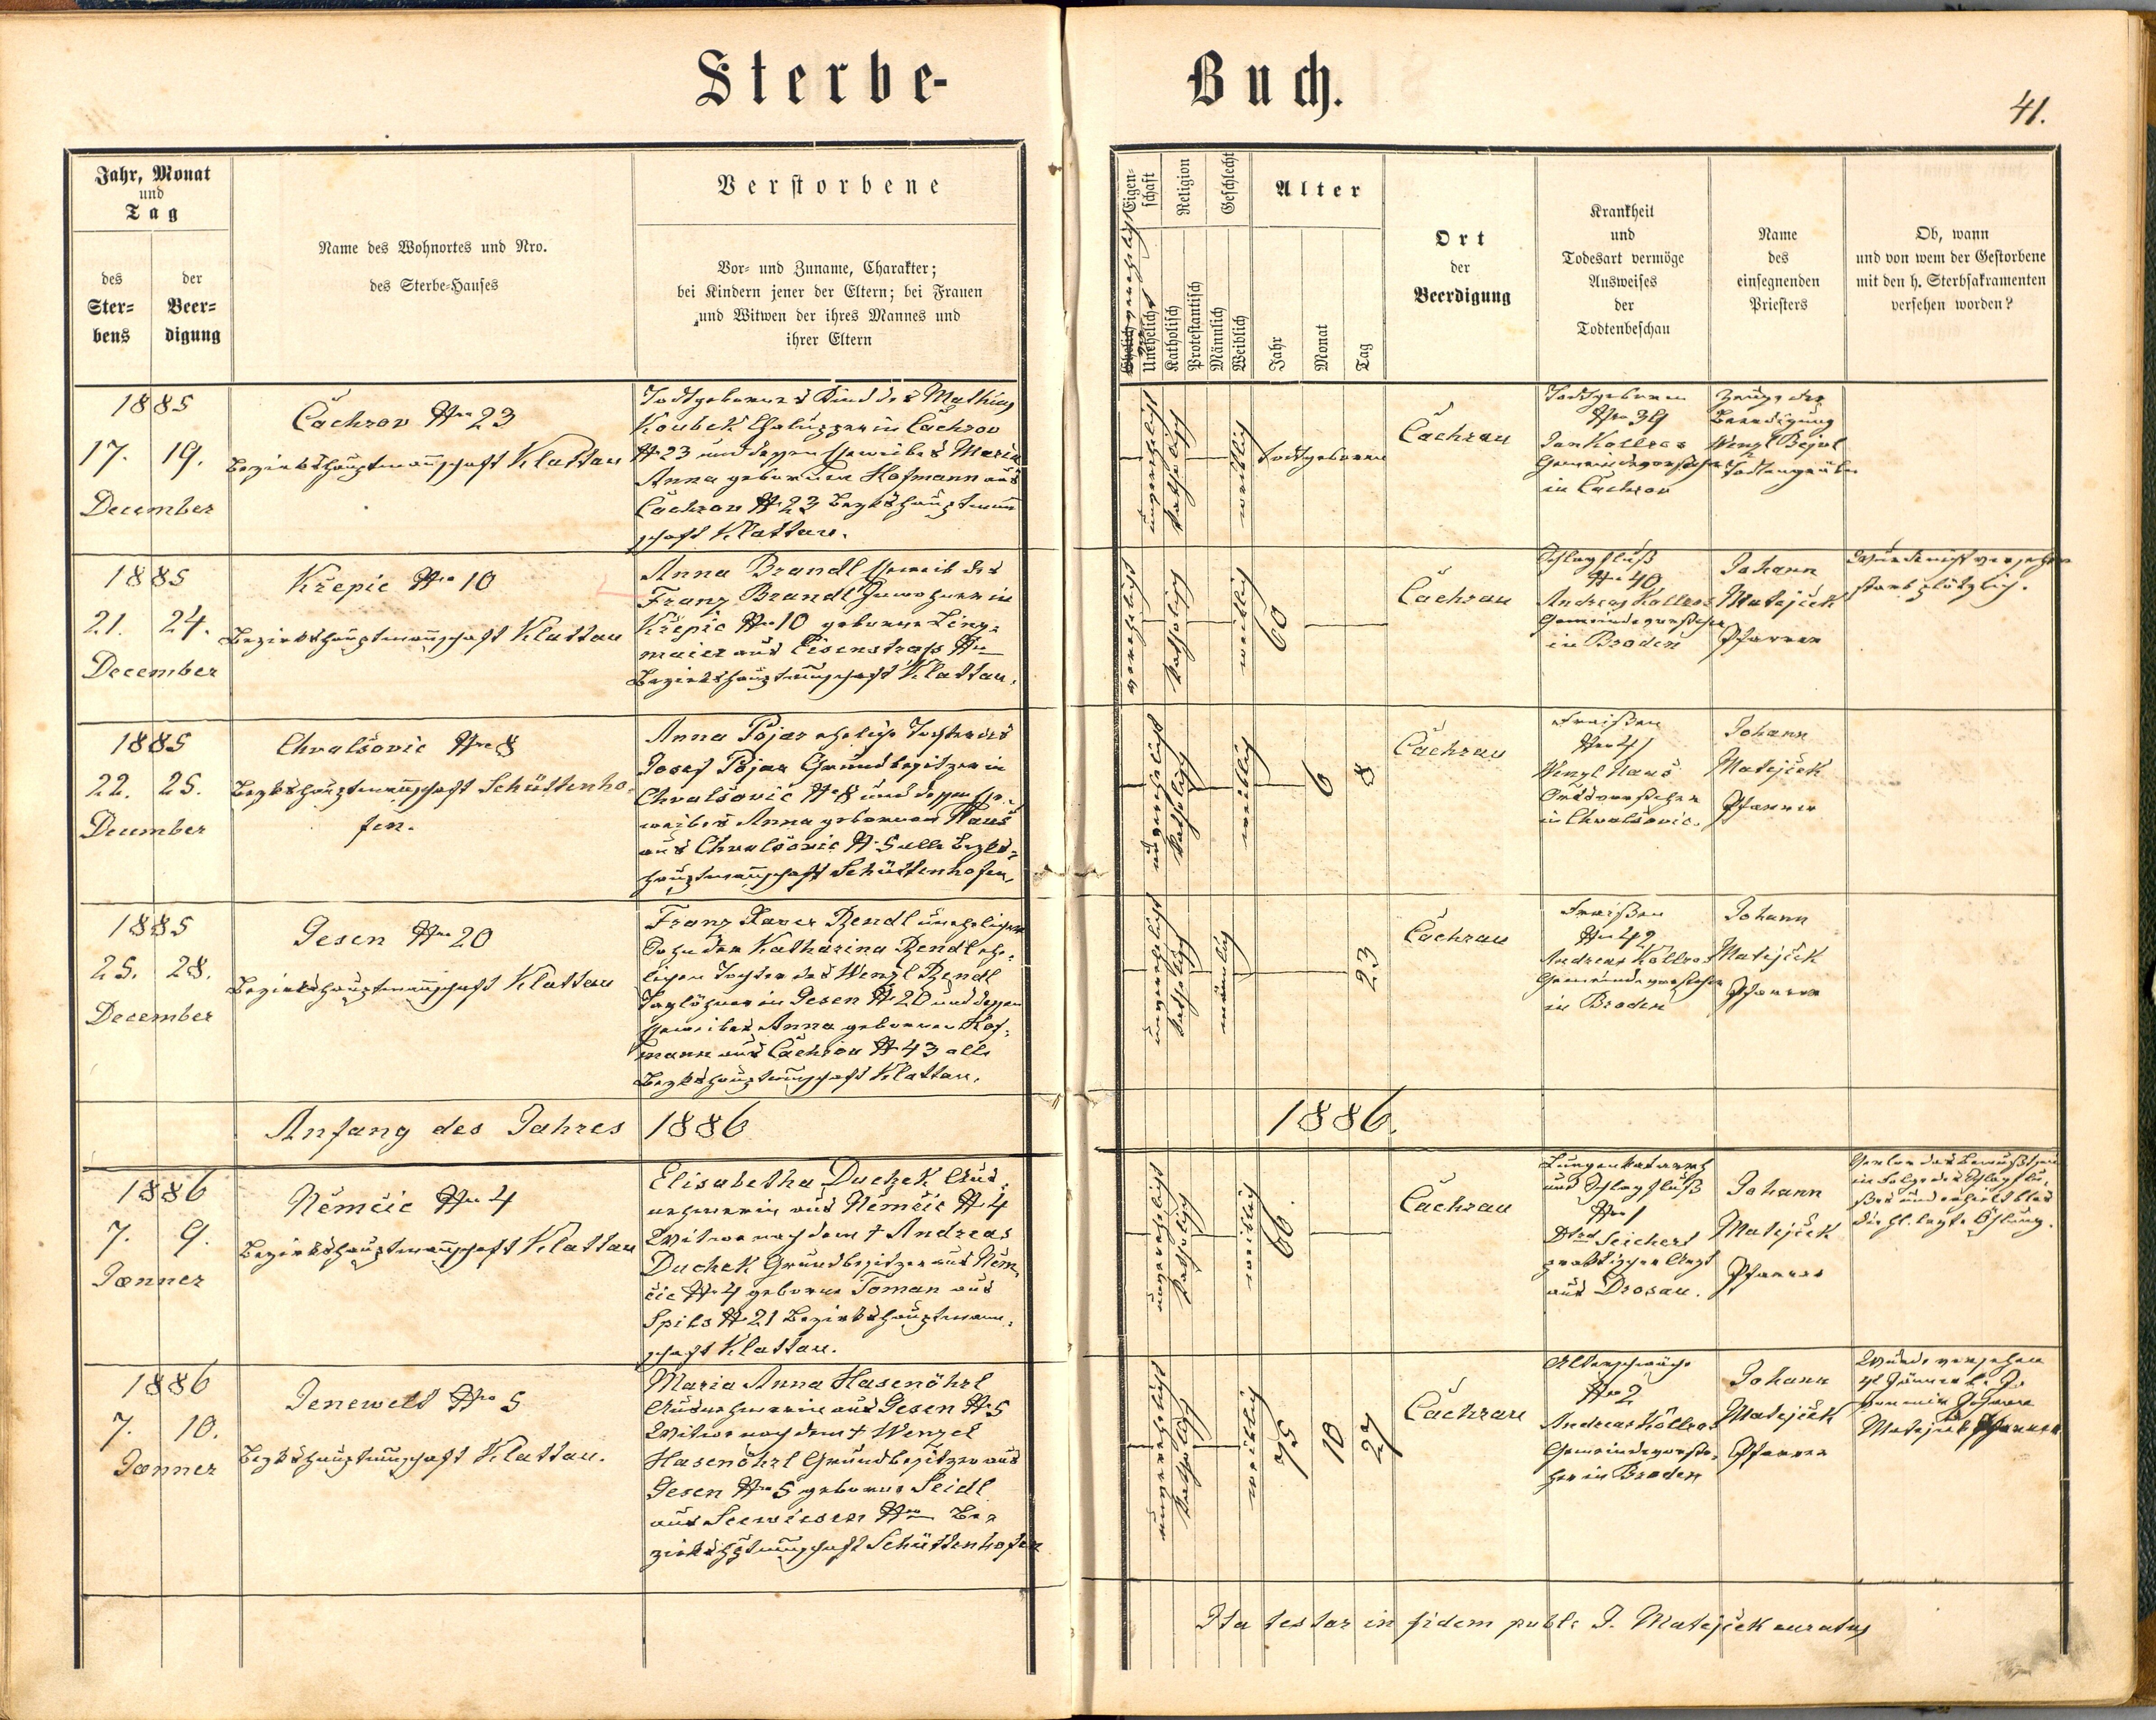 Sterbe-
Buch.
41.
Jahr, Monat
und
Tag
des
Ster-
bens
der
Beer-
digung
Name des Wohnortes und Nro.
des Sterbe-Hauses
Verstorbene
Vor- und Zuname, Charakter;
bei Kindern jener der Eltern; bei Frauen
und Witwen der ihres Mannes und
ihrer Eltern
Eigen-
schaft
Religion
Geschlecht
Alter
Ehelich
Unehelich
Katholisch
Protestantisch
Männlich
Weiblich
Jahr
Monat
Tag
Ort
der
Beerdigung
Krankheit
und
Todesart vermöge
Ausweises
der
Todtenbeschau
Name
des
einsegnenden
Priesters
Ob, wann
und von wem der Gestorbene
mit den h. Sterbsakramenten
versehen worden?
1885
17. 19.
December
Čachrov Nro 23
Bezirkshauptmannschaft Klattau
Todtgeborenes Kind des Mathias
Koubek Chaluppner in Čachrov
N 23 und dessen Eheweibes Maria
Anna geborenen Hofmann aus
Čachrau N 23 Bezkshauptmann
schaft Klattau.
unverehelicht
katholisch
weiblich
todtgeboren
Čachrau
Todtgeboren
Nro 39
Jan Kollros
Gemeindevorsteher
in Čachrov
Zeuge der
Beerdigung
Wenzl Bejvl
Todtengräber
1885
21. 24.
December
Křepic Nro 10
Bezirkshauptmannschaft Klattau
Anna Brandl Eheweib des
Franz Brandl Inwohner in
Křepic Nro 10 geborene Ling-
maier aus Eisenstrass Nro
Bezirkshauptmannschaft Klattau.
verehelicht
katholisch
weiblich
60
Čachrau
Schlagfluß
Nro 40
Andreas Kollros
Gemeindevorsteher
in Broden
Johann
Matějček
Pfarrer
Wurde nicht versehen
starb plötzlich.
1885
22. 25.
December
Chvalšovic Nro 8
Bezkshauptmannschaft Schüttenho-
fen.
Anna Pojar eheliche Tochter des
Josef Pojar Grundbesitzer in
Chvalšovic N 8 und dessen Ehe-
weibes Anna geborenen Hanš
aus Chvalšovic N 5 alle Bezks-
hauptmannschaft Schüttenhofen
unverehelicht
katholisch
weiblich
6
8
Čachrau
Fraißen
Nro 41
Wenzl Hanš
Ortsvorsteher
in Chvalšovic.
Johann
Matějček
Pfarrer
1885
25. 28.
December
Jesen Nro 20
Bezirkshauptmannschaft Klattau
Franz Xaver Rendl unehelicher
Sohn der Katharina Rendl ehe-
lichen Tochter des Wenzl Rendl
Taglöhner in Jesen N 20 und dessen
Eheweibes Anna geborenen Hof-
mann aus Čachrov N 43 alle
Bezkshauptmannschaft Klattau.
unverehelicht
katholisch
männlich
23
Čachrau
Fraißen
Nro 42
Andreas Kollros
Gemeindevorsteher
in Broden
Johann
Matějček
Pfarrer
Anfang des Jahres 1886
1886.
1886
7. 9.
Jænner
Němčic Nro 4
Bezirkshauptmannschaft Klattau
Elisabetha Duchek Aus-
nehmerin aus Němčic N 4
Witwe nach dem † Andreas
Duchek Grundbesitzer aus Něm-
čic N 4 geborene Toman aus
Spils N 21 Bezirkshauptmann-
schaft Klattau.
unverehelicht
katholisch
weiblich
66
Čachrau
Lungenkatarrh
und Schlagfluß
Nro 1
Seichert
praktischer Arzt
aus Drosau.
Johann
Matějček
Pfarrer
Verlor das Bewußtsein
in Folge des Schlagflu-
ßes und erhielt blos
die hl. letzte Öhlung.
1886
7. 10.
Jænner
Jenewelt Nro 5
Bezkshauptmannschaft Klattau.
Maria Anna Hasenöhrl
Ausnehmerin aus Jesen N 5
Witwe nach dem † Wenzel
Hasenöhrl Grundbesitzer aus
Jesen Nro 5 geborene Seidl
aus Seewiesen Nro Be-
zirkshptmannschaft Schüttenhofen
unverehelicht
katholisch
weiblich
75
10
27
Čachrau
Altersschwäche
Nro 2
Andreas Kollros
Gemeindevorste-
her in Broden
Johann
Matějček
Pfarrer
Wurde versehen
Jänner l. J.
von mir Johann
Matějček Pfarrer
Ita testor in fidem publ. J. Matějček curatus